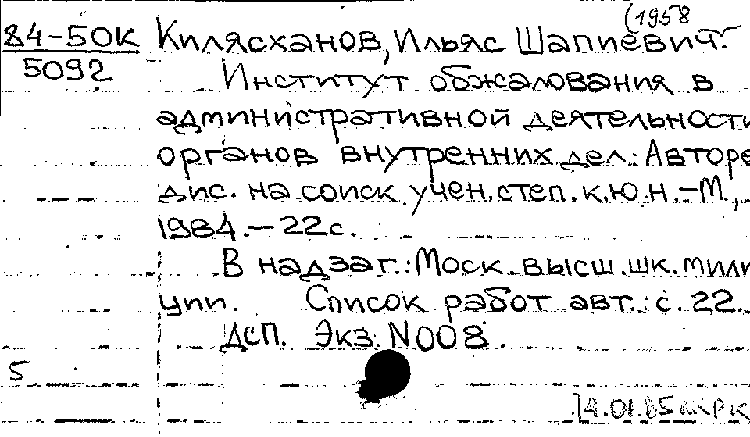 (1958
84-50К Килясханов, Ильяс Шапиевич.
5092
Институт обжалования в
административной деятельности
органов внутренних дел: Авторе
дис. на соиск учен. степ. к.ю.н. - М.,
1984. - 22 с.
В надзаг.: Моск. высш. шк. мили
ции. Список работ авт.: с. 22.
ДСП. Экз. N008.
5
14.01.85